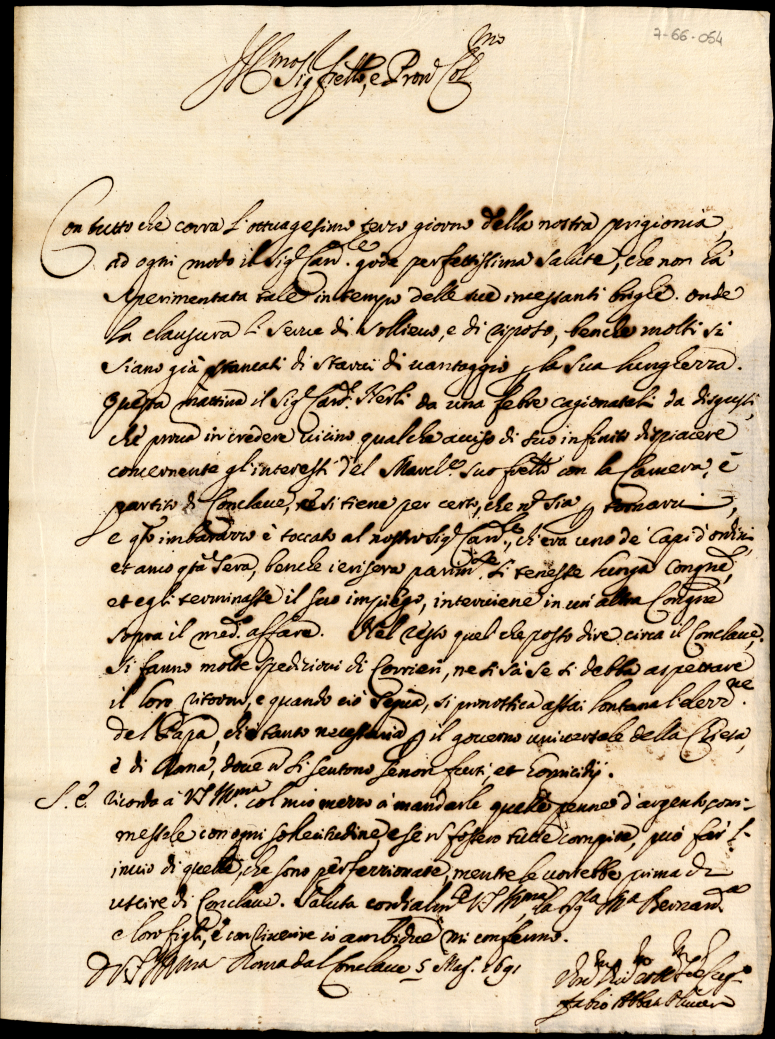 7-66-064
Ill.mo Sig. fratello, e Pron Col.mo
Con tutto che corra l'ottuagesimo terzo giorno della nostra prigionia,
ad ogni modo il Sig. Card.le gode perfettissima salute, che non hà
sperimentata tale in tempo delle sue incessanti brighe. onde
la clausura li serue di sollieuo, e di riposo, benche molti si
siano già stancati di starui di uantaggio p la sua lunghezza.
Questa mattina il Sig. Card. Nerli da una febre cagionatali da disgusti,
che proua in credere uicino qualche auuiso di suo infinito dispiacere
concernente gl'interessi del March.e suo frello con la Camera, è
partito di Conclaue, ne si tiene per certo, che n sia p tornarui,
e qto imbarazzo è toccato al nostro Sig. Card.le, ch'era uno de' Capi d'ordini,
et anco qta sera, benche hiersera parim.te si tenesse lunga Congne,
et egli terminasse il suo impiego, interuiene in un'altra Congne
sopra il med. affare. Nel resto quel che posso dire circa il Conclaue,
si fanno molte spedizioni di Corrieri, ne si sà se si debba aspettare
il loro ritorno, e quando ciò segua, si pronostica assai lontana l'elezz.ne
del Papa, ch'è tanto necessaria p il governo uniuersale della Chiesa,
è di Roma, doue n si sentono se non furti, et homicidij.
S. E. ricorda à VS Ill.ma col mio mezzo à mandarle quelle penne d'argento com-
messele con ogni sollecitudine, e se n fossero tutte compite, può far l'-
inuio di quelle, che sono perfezzionate, mentre le uorrebbe prima di
uscire di Conclaue. Saluta cordialm.te VS Ill.ma, la Sig.ra Ma Bernard.a
e loro figli, e con riuerire io ambidue mi confermo.
D VS Ill.ma Roma dal Conclaue 5 Mag. 1691
Fabio Abbate Oliuieri